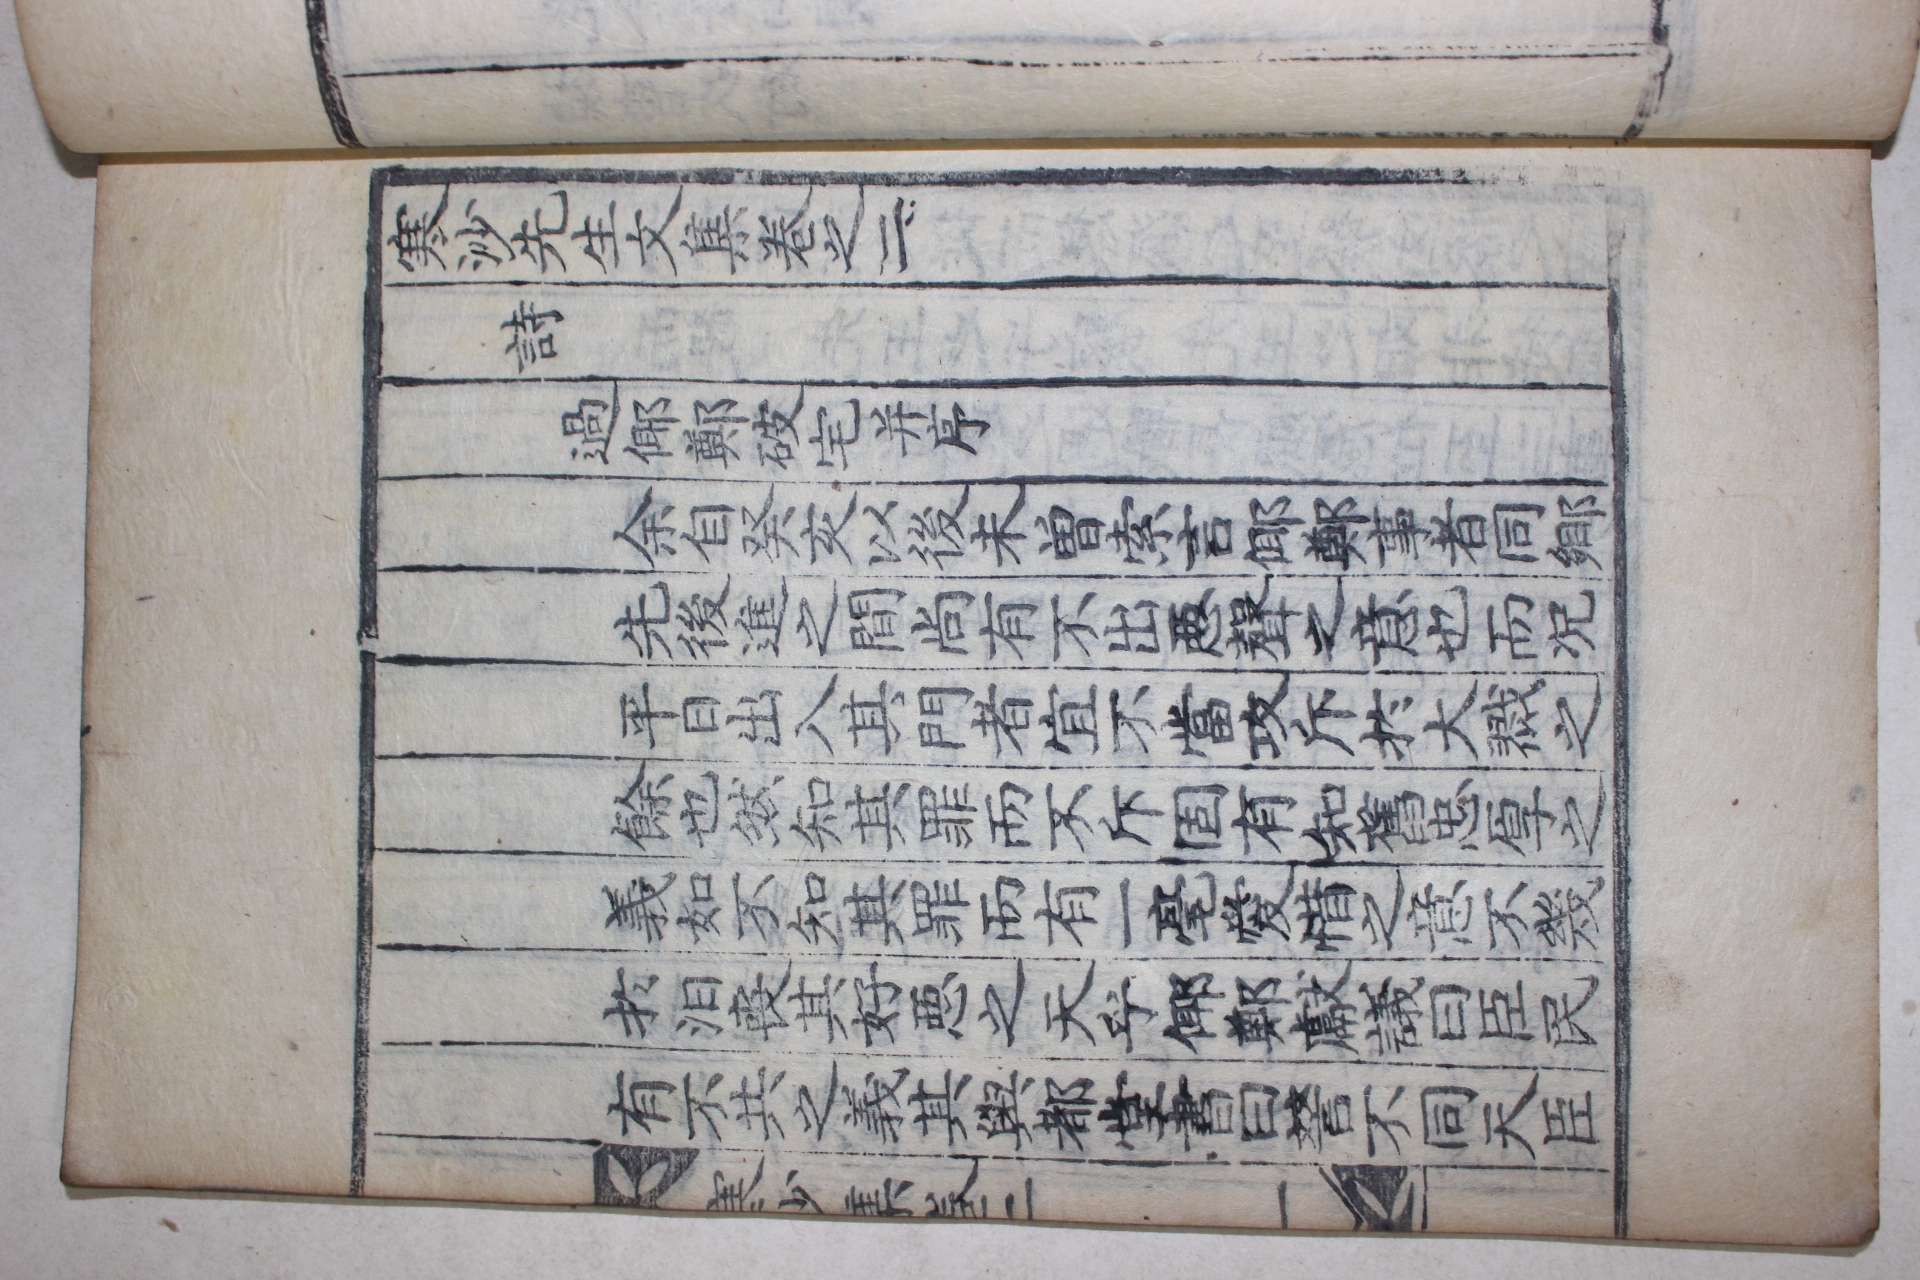 寒沙先生文集卷之二
詩
過倻鄭破宅并序
余自癸亥以後未曾索言倻鄭事者同鄉
先後進之間尚有不出惡聲之意也而况
平日出入其門者宜不當攻斥於大戮之
餘也然知其罪而不斥固有知舊忠厚之
義如不知其罪而有一毫愛惜之意不幾
於汩殽其好惡之天乎倻鄭獻議曰臣民
有不共之義其與都堂書曰誓不同天臣
寒沙集卷二 一